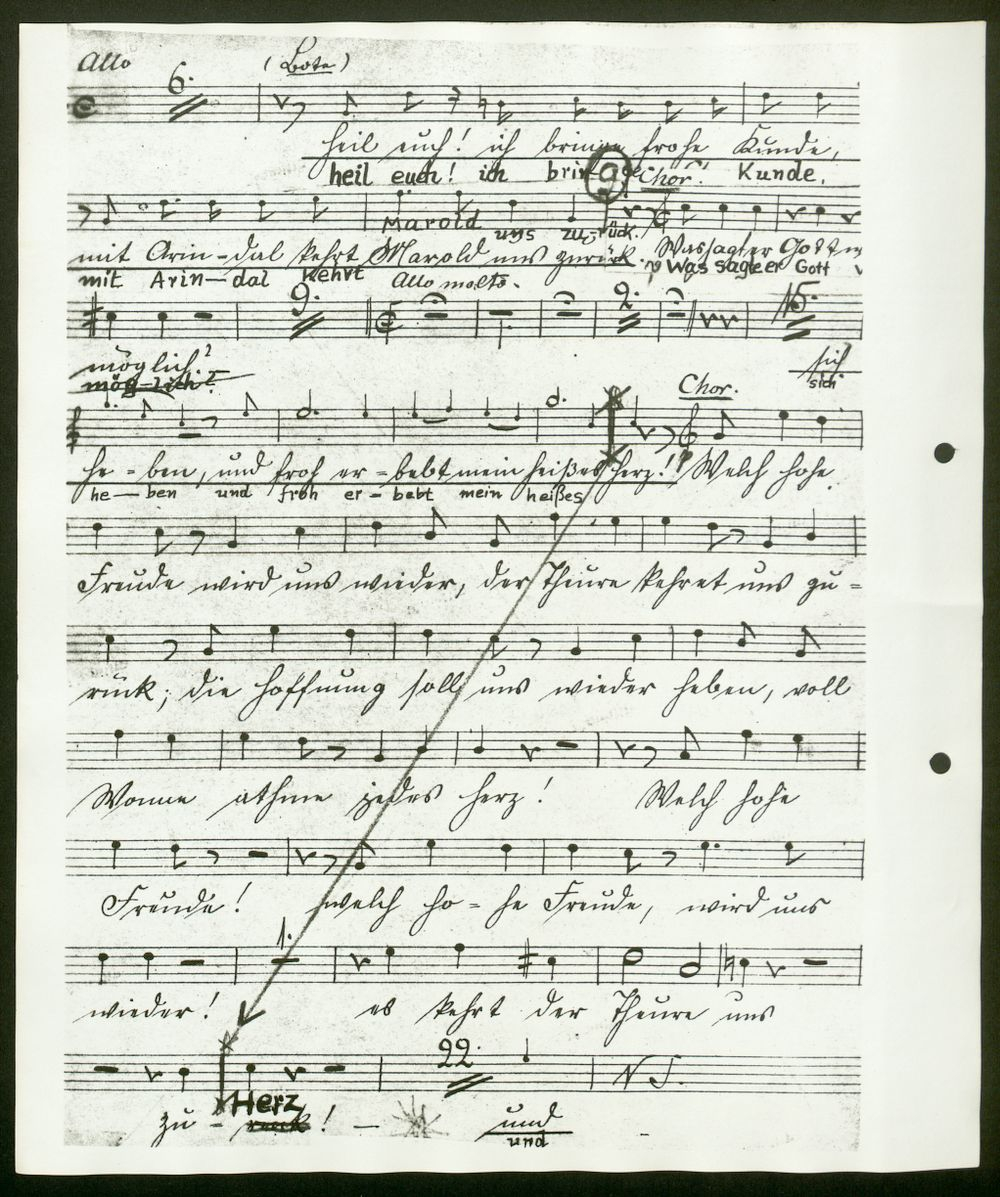 Allo 6. (Bote)
heil euch! ich bringe frohe Kunde,
heil euch! ich brin-ge Kunde.
a Chor!
Marold uns zu-rück.
mit Arin-dal kehrt Marold uns zurück. Was sagt er Gott
mit Arin-dal kehrt Was sagt er Gott
Allo molto.
9. 2. 15.
möglich? sich
mög-lich? sich
Chor.
he-ben, und froh er-bebt mein heißes Herz! Welch hohe
he-ben und froh er-bebt mein heißes
Freude wird uns wieder, der Theure kehret uns zu=
rück; die Hoffnung soll uns wieder heben, voll
Wonne athme jedes Herz! Welch hohe
Freude! welch ho-he Freude, wird uns
1.
wieder! es kehrt der Theure uns
22.
Herz
zu-rück! und
und